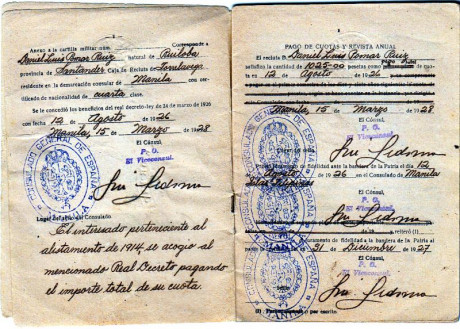 Anexo a la cartilla militar núm. Correspondiente a
Daniel Luis Pomar Ruiz natural de
provincia de Santander Caja de Recluta de Torrelavega
residente en la demarcación consular de Manila con cer-
tificado de nacionalidad de cuarta clase.
Se concedió los beneficios del real decreto-ley de 24 de marzo de 1926
con fecha 12 de Agosto de 1926
Manila, 15 de Marzo de 1928
El Cónsul,
P. O.
El Vicecónsul.
CONSULADO GENERAL DE ESPAÑA
MANILA
Lugar del sello del Consulado.
El interesado perteneciente al
alistamiento de 1914, se acogió al
mencionado Real Decreto pagando
el importe total de su cuota.
PAGO DE CUOTAS Y REVISTA ANUAL
El recluta Daniel Luis Pomar Ruiz
satisfizo la cantidad de 1025-00 pesetas como
ta en 12 Agosto de 1926
Manila, 15 Marzo de 1928
El Cónsul,
P. O.
El Vicecónsul.
juramento de fidelidad ante la bandera de la Patria el día 12
Agosto de 1926 en el Consulado de Manila
El Cónsul,
P. O.
El Vicecónsul.
juramento de fidelidad a la bandera de la Patria
31 Diciembre de 1927
El Cónsul,
P. O.
El Vicecónsul.
CONSULADO GENERAL DE ESPAÑA
MANILA
(1) por escrito.